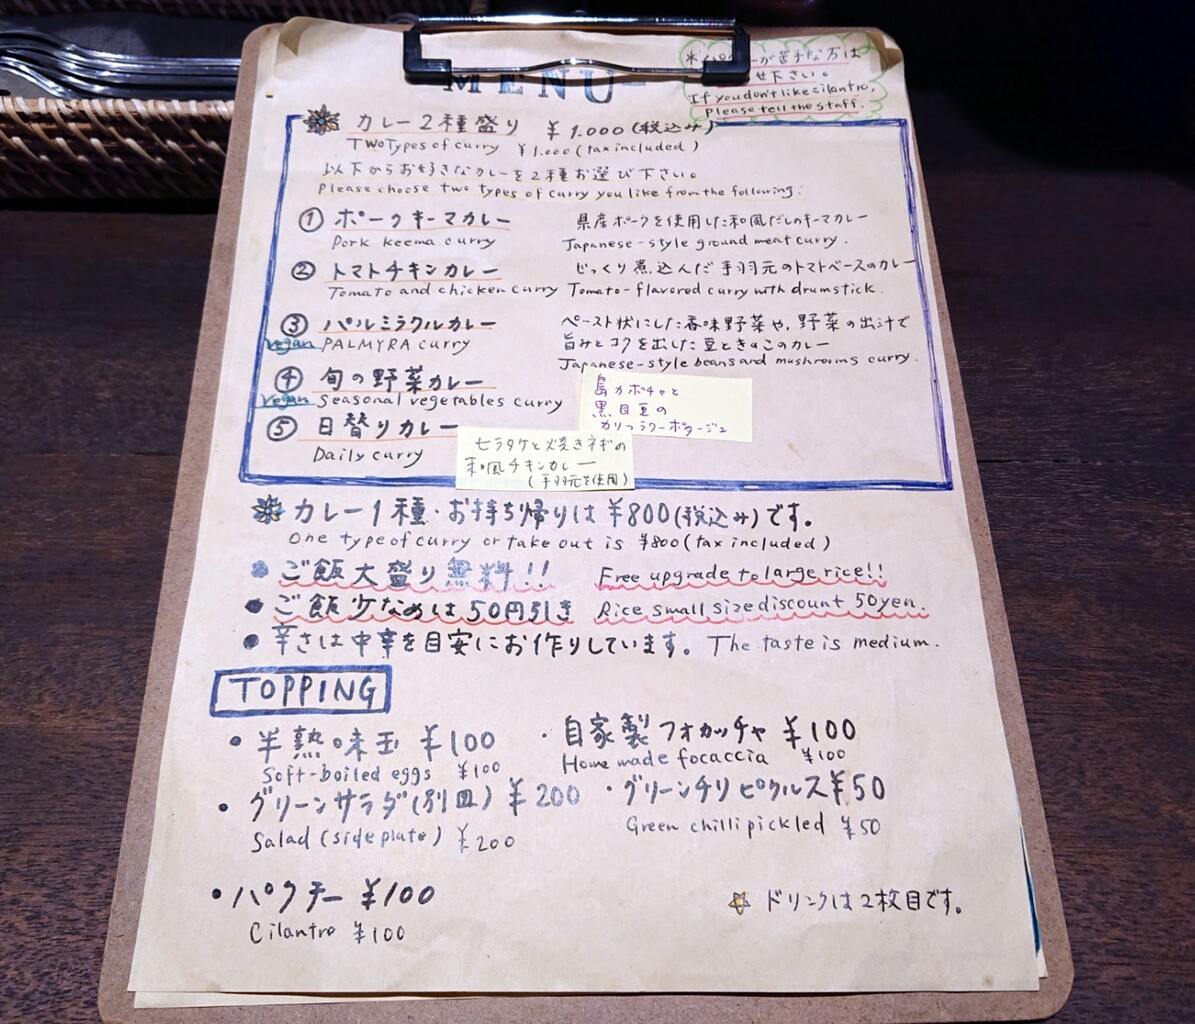 MENU
が苦手な方は
せ下さい。
If you don't like cilantro,
Please tell the staff.
カレー2種盛り ¥1.000(税込み)
Two Types of curry ¥1.000(tax included)
以下からお好きなカレーを2種お選び下さい。
Please choose two types of curry you like from the following.
① ポークキーマカレー 県産ポークを使用した和風だしのキーマカレー
Pork keema curry Japanese-style ground meat curry.
② トマトチキンカレー じっくり煮込んだ手羽元のトマトベースのカレー
Tomato and chicken curry Tomato-flavored curry with drumstick.
③ パルミラクルカレー ペースト状にした香味野菜や、野菜の出汁で
旨みとコクを出した豆ときのこのカレー
vegan PALMYRA curry Japanese-style beans and mushrooms curry.
④ 旬の野菜カレー 島カボチャと
vegan Seasonal vegetables curry 黒目豆の
カリフラワーポタージュ
⑤ 日替りカレー
Daily curry
ヒラタケと焼きネギの
和風チキンカレー
(手羽元を使用)
カレー1種・お持ち帰りは¥800(税込み)です。
One type of curry or take out is ¥800(tax included)
• ご飯大盛り無料!! Free upgrade to large rice!!
• ご飯少なめは50円引き Rice small size discount 50yen.
• 辛さは中辛を目安にお作りしています。 The taste is medium.
TOPPING
• 半熟味玉 ¥100 ・自家製フォカッチャ ¥100
Soft-boiled eggs ¥100 Home made focaccia ¥100
• グリーンサラダ(別皿) ¥200 ・グリーンチリピクルス¥50
Salad(side plate) ¥200 Green chilli pickled ¥50
• パクチー ¥100
Cilantro ¥100
☆ ドリンクは2枚目です。